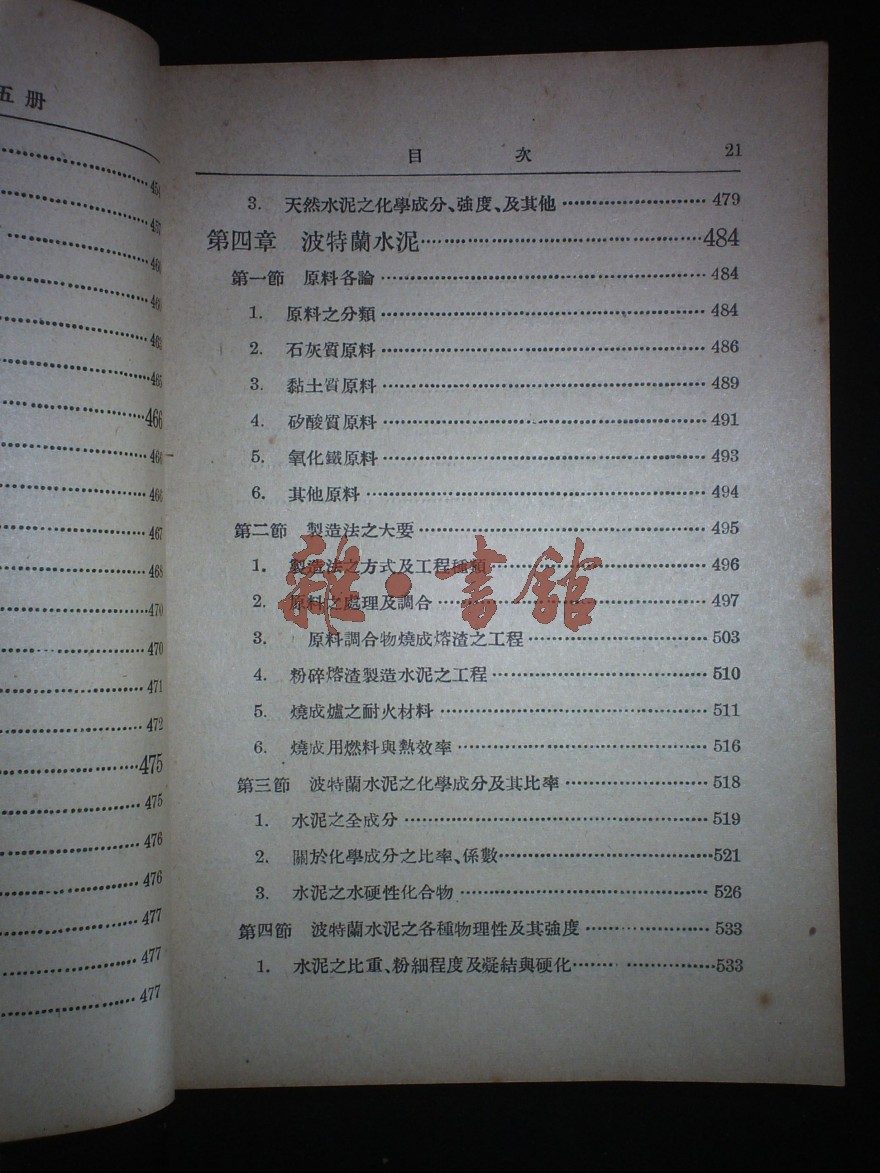 五册
454
457
460
460
463
465
466
466
466
467
468
470
470
471
472
475
475
476
476
477
477
477
目 次 21
3. 天然水泥之化學成分、强度、及其他 479
第四章 波特蘭水泥 484
第一節 原料各論 484
1. 原料之分類 484
2. 石灰質原料 486
3. 黏土質原料 489
4. 矽酸質原料 491
5. 氧化鐵原料 493
6. 其他原料 494
第二節 製造法之大要 495
1. 製造法之方式及工程種類 496
2. 原料之處理及調合 497
3. 原料調合物燒成熔渣之工程 503
4. 粉碎熔渣製造水泥之工程 510
5. 燒成爐之耐火材料 511
6. 燒成用燃料與熱效率 516
第三節 波特蘭水泥之化學成分及其比率 518
1. 水泥之全成分 519
2. 關於化學成分之比率、係數 521
3. 水泥之水硬性化合物 526
第四節 波特蘭水泥之各種物理性及其强度 533
1. 水泥之比重、粉細程度及凝結與硬化 533
雜·書館